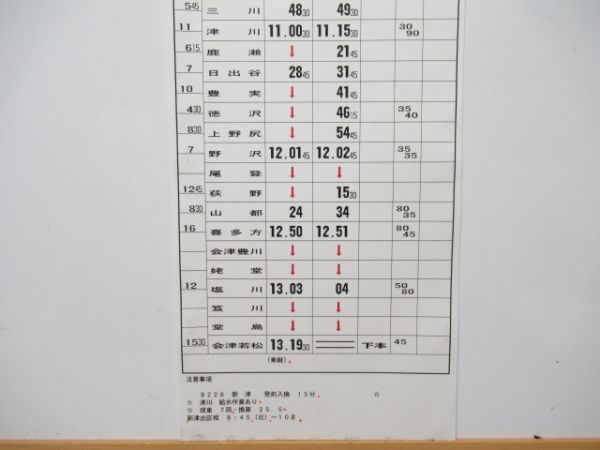 545 三川 4830 4930
11 津川 11.0030 11.1530 30 90
615 鹿瀬 ↓ 2145
7 日出谷 2845 3145
10 豊実 ↓ 4145
430 徳沢 ↓ 4615 35 40
830 上野尻 ↓ 5445
7 野沢 12.0145 12.0245 35 35
尾登 ↓ ↓
1245 荻野 ↓ 1530
830 山都 24 34 80 35
16 喜多方 12.50 12.51 80 45
会津豊川 ↓ ↓
姥堂 ↓ ↓
12 塩川 13.03 04 50 80
笈川 ↓ ↓
堂島 ↓ ↓
1530 会津若松 13.1930 下本 45
(乗継)
注意事項
8226 新津 発前入換 15分 ☆
☆ 津川 給水作業あり
☆ 現車 7両 換算 25.5
新津出区核 8:45(北)〜10